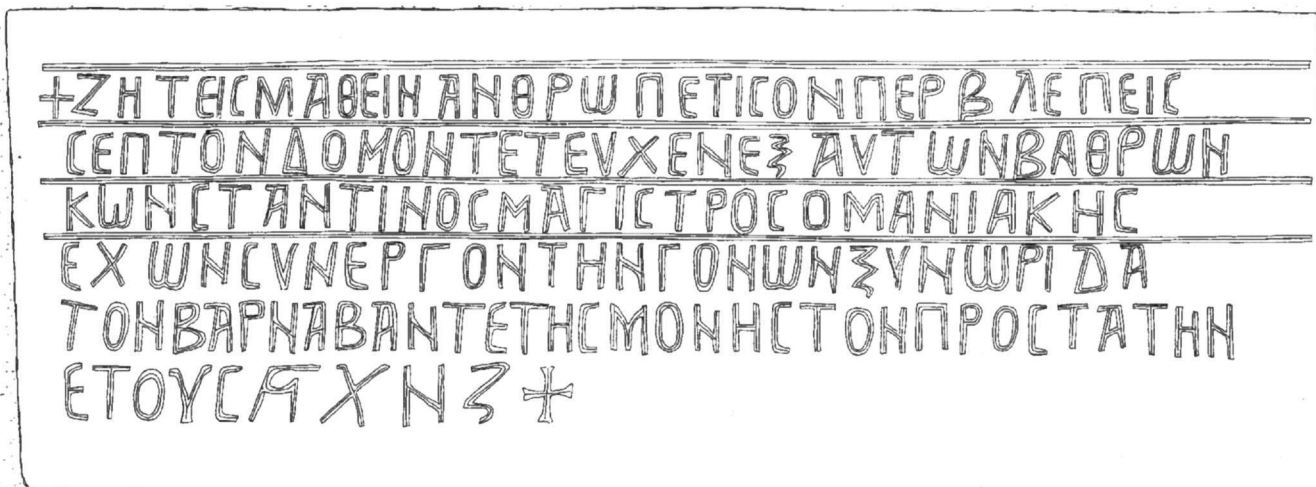 +ΖΗΤΕΙCΜΑΘΕΙΝΑΝΘΡΩΠΕΤΙCΟΝΠΕΡΒΛΕΠΕΙC
CΕΠΤΟΝΔΟΜΟΝΤΕΤΕVΧΕΝΕΞΑVΤΩΝΒΑΘΡΩΝ
ΚΩΝCΤΑΝΤΙΝΟCΜΑΓΙCΤΡΟCΟΜΑΝΙΑΚΗC
ΕΧΩΝCVΝΕΡΓΟΝΤΗΝΓΟΝΩΝΞVΝΩΡΙΔΑ
ΤΟΝΒΑΡΝΑΒΑΝΤΕΤΗCΜΟΝΗCΤΟΝΠΡΟCΤΑΤΗΝ
ΕΤΟΥCϠΧΝΖ+